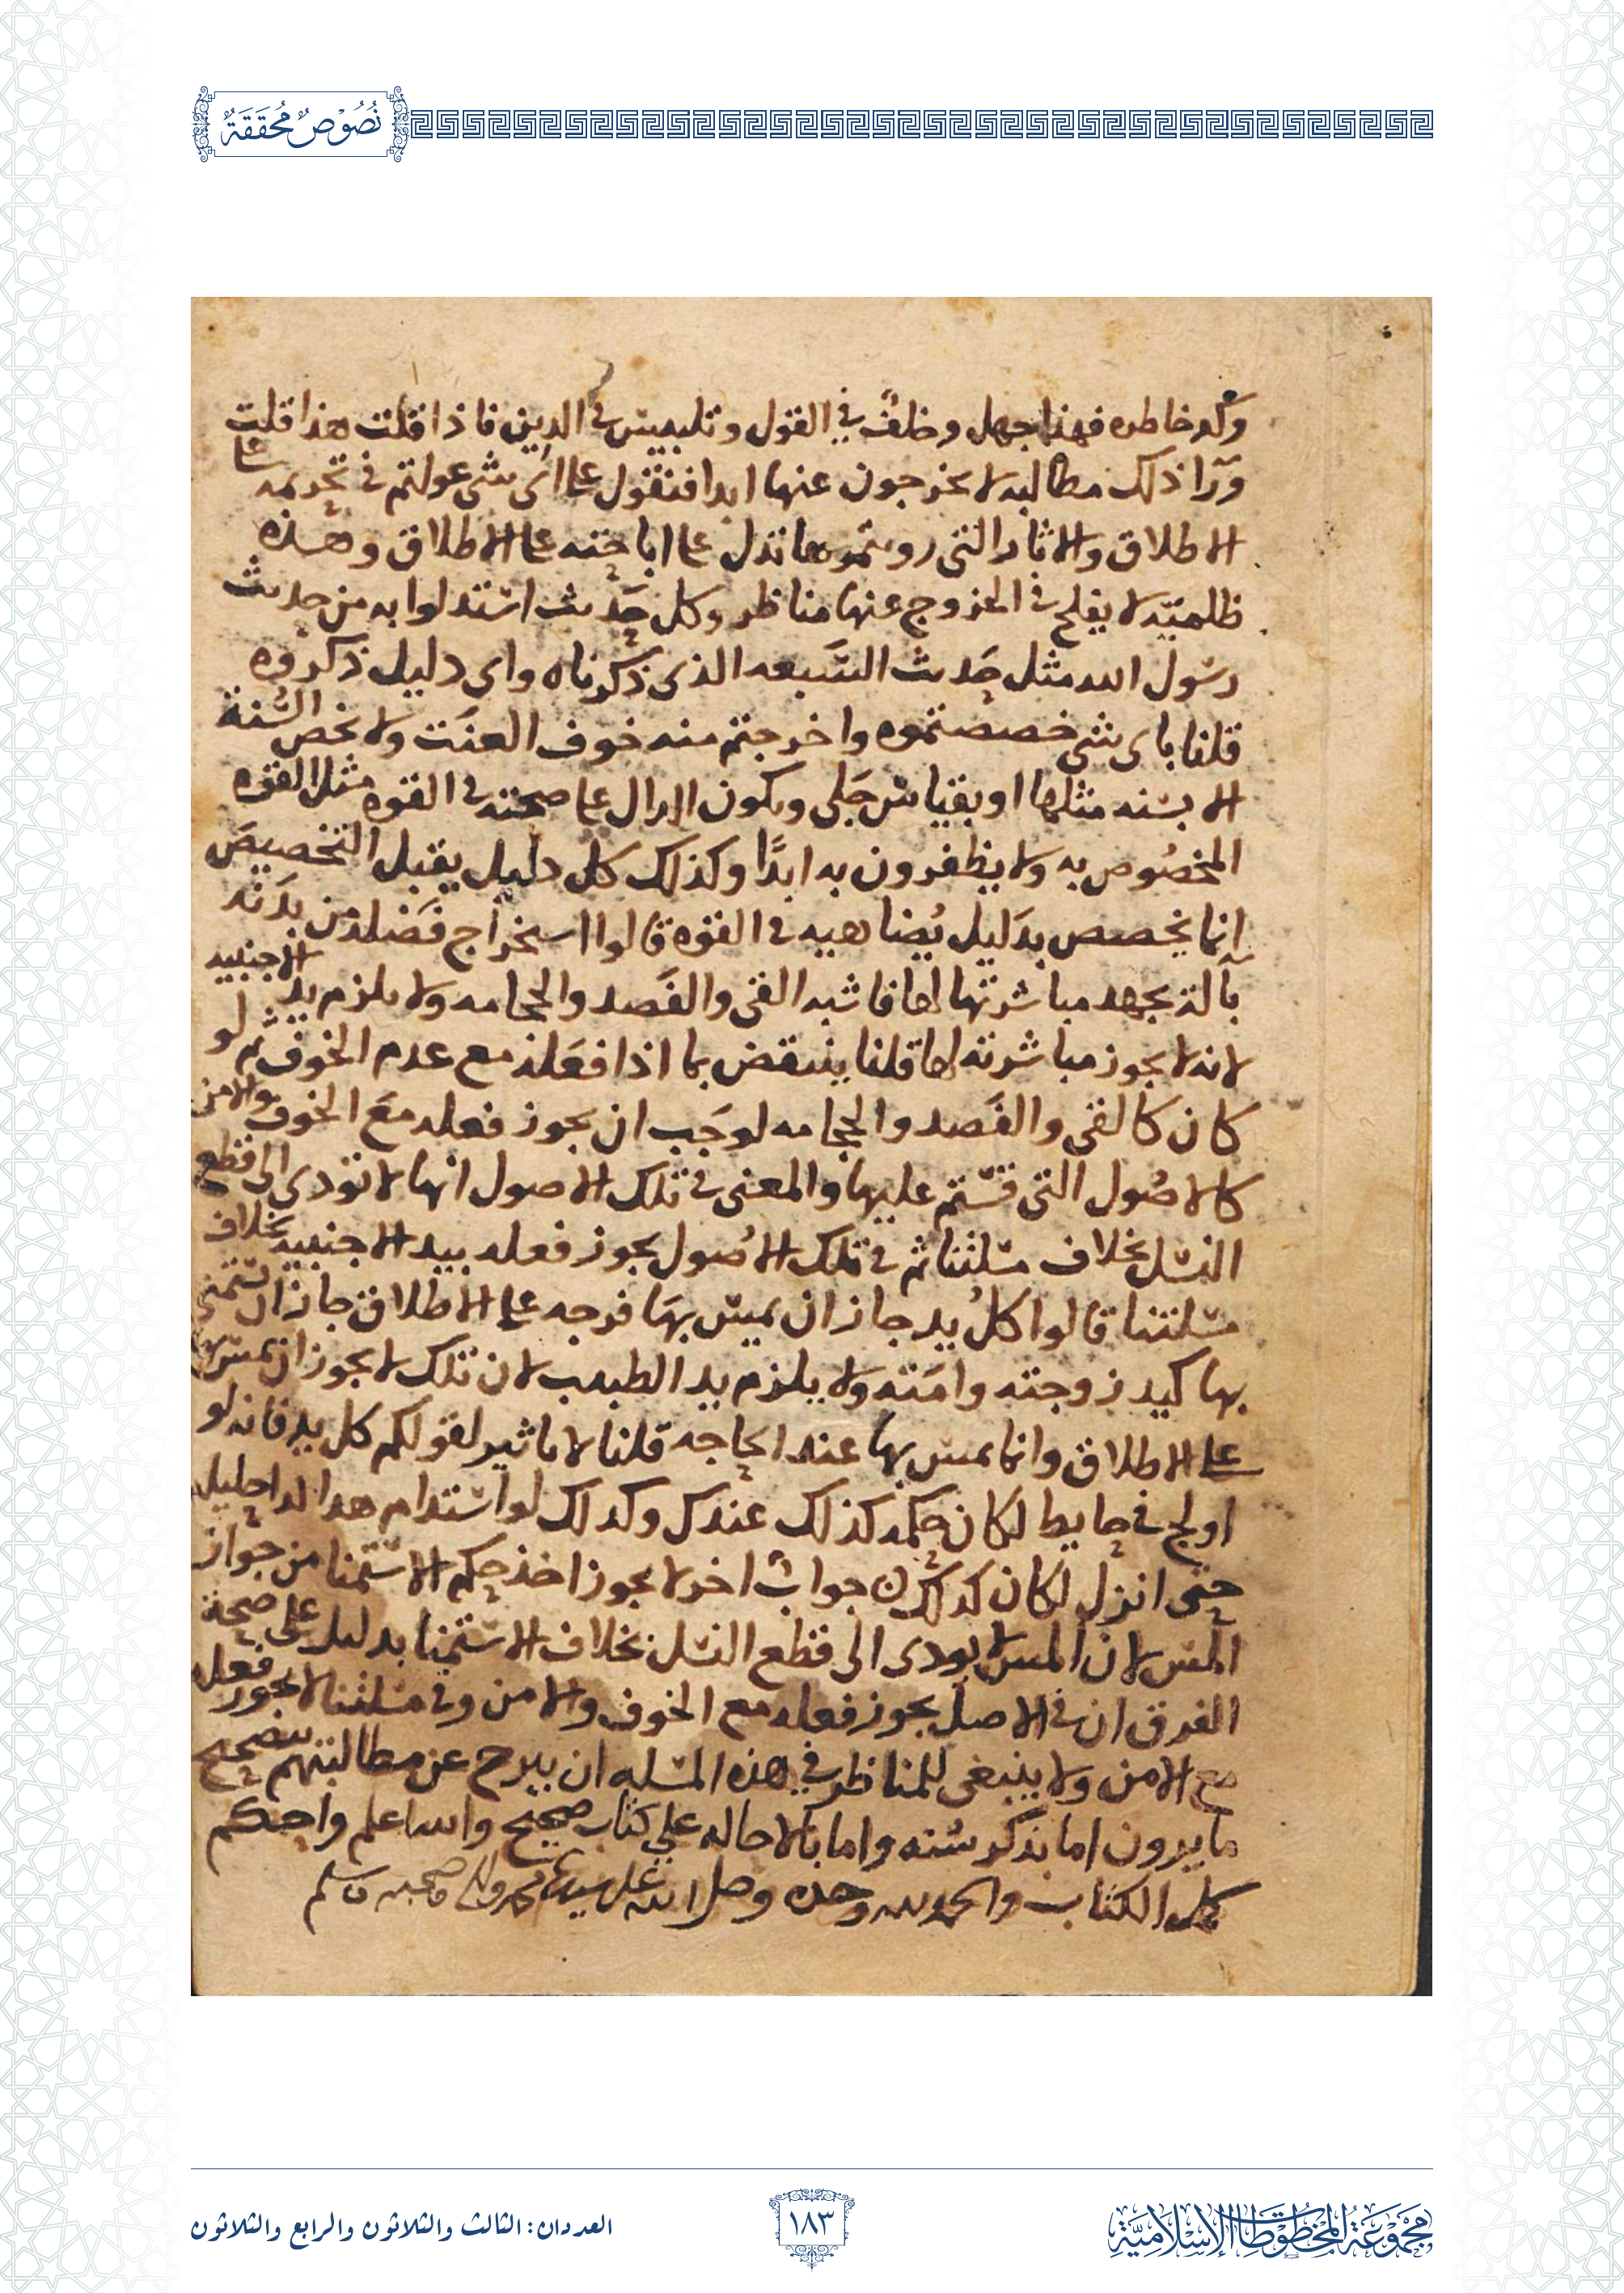 نُصُوْصٌ مُحَقَّقَةٌ
وكد خاطره فهذا جهل وخلفٌ في القول وتلبيس في الدين فاذا قلت هذا قلت
ورآ ذلك مطالبه لا يخرجون عنها ابدا فنقول على اي شي عولتم في تحريمه على
الاطلاق والاثار التي رويتموها تدل على اباحته على الاطلاق وهذه
لا يفلح في الخروج عنها مناظر وكل حديث استدلوا به من حديث
رسول الله مثل حديث السبعه الذي ذكرناه واي دليل ذكروه
قلنا باي شي خصصتموه واخرجتم منه خوف العنت ولا يخص السنة
الا بسنه مثلها او بقياس جلي ويكون الدال على صحته في القوه مثل القوه
المخصُوص به ولا يظفرون به ابدًا وكذلك كل دليل يقبل التخصيص
انما يخصص بدليل يُضاهيه في القوه قالوا استخراج فضله من بدنه
بآلة يجهد مباشرتها لها فاشبه القي والفصد والحجامه ولا يلزم يد الاجنبيه
لانه لا يجوز مباشرته لها قلنا ينتقض بما اذا فعله مع عدم الخوف ثم لو
كان كالقي والفصد والحجامه لوجب ان يجوز فعله مع الخوف والامن
كالاصُول التي قستم عليها والمعنى في تلك الاصول انها لا تودي الى قطع
النسل بخلاف مسلتنا ثم في تلك الاصُول يجوز فعله بيد الاجنبيه بخلاف
مسلتنا قالوا كلُ يد جاز ان يمس بها فرجه على الاطلاق جاز ان يستمني
بها كيد زوجته وامته ولا يلزم يد الطبيب لان تلك لا يجوز ان يمس بها
على الاطلاق وانما يمس بها عند الحاجه قلنا لا تاثير لقولكم كل يد فانه لو
اولج في حايط لكان حكمه كذلك عندك وكدلك لو استدام احليله
حتى انزل لكان كدلك جوابٌ اخر لا يجوز اخذ حكم الاستمنا من جواز
المس لان المس لا يودي الى قطع النسل بخلاف الاستمنا بدليل على صحة
الفرق ان في الاصل يجوز فعله مع الخوف والامن وفي مسلتنا لا يجوز فعله
مع الامن ولا ينبغي للمناظر في هذه المسله ان يبرح عن مطالبتهم بتصحيح
ما يرون اما بذكر سنه واما بالاحاله على كتاب صحيح والله اعلم واحكم
كمل الكتاب والحمد لله وحده وصل الله على سيدنا محمد واله وصحبه وسلم
مَجْمُوعَةُ المَخْطُوطَاتِ الإِسْلَامِيَّةِ
١٨٣
العددان: الثالث والثلاثون والرابع والثلاثون